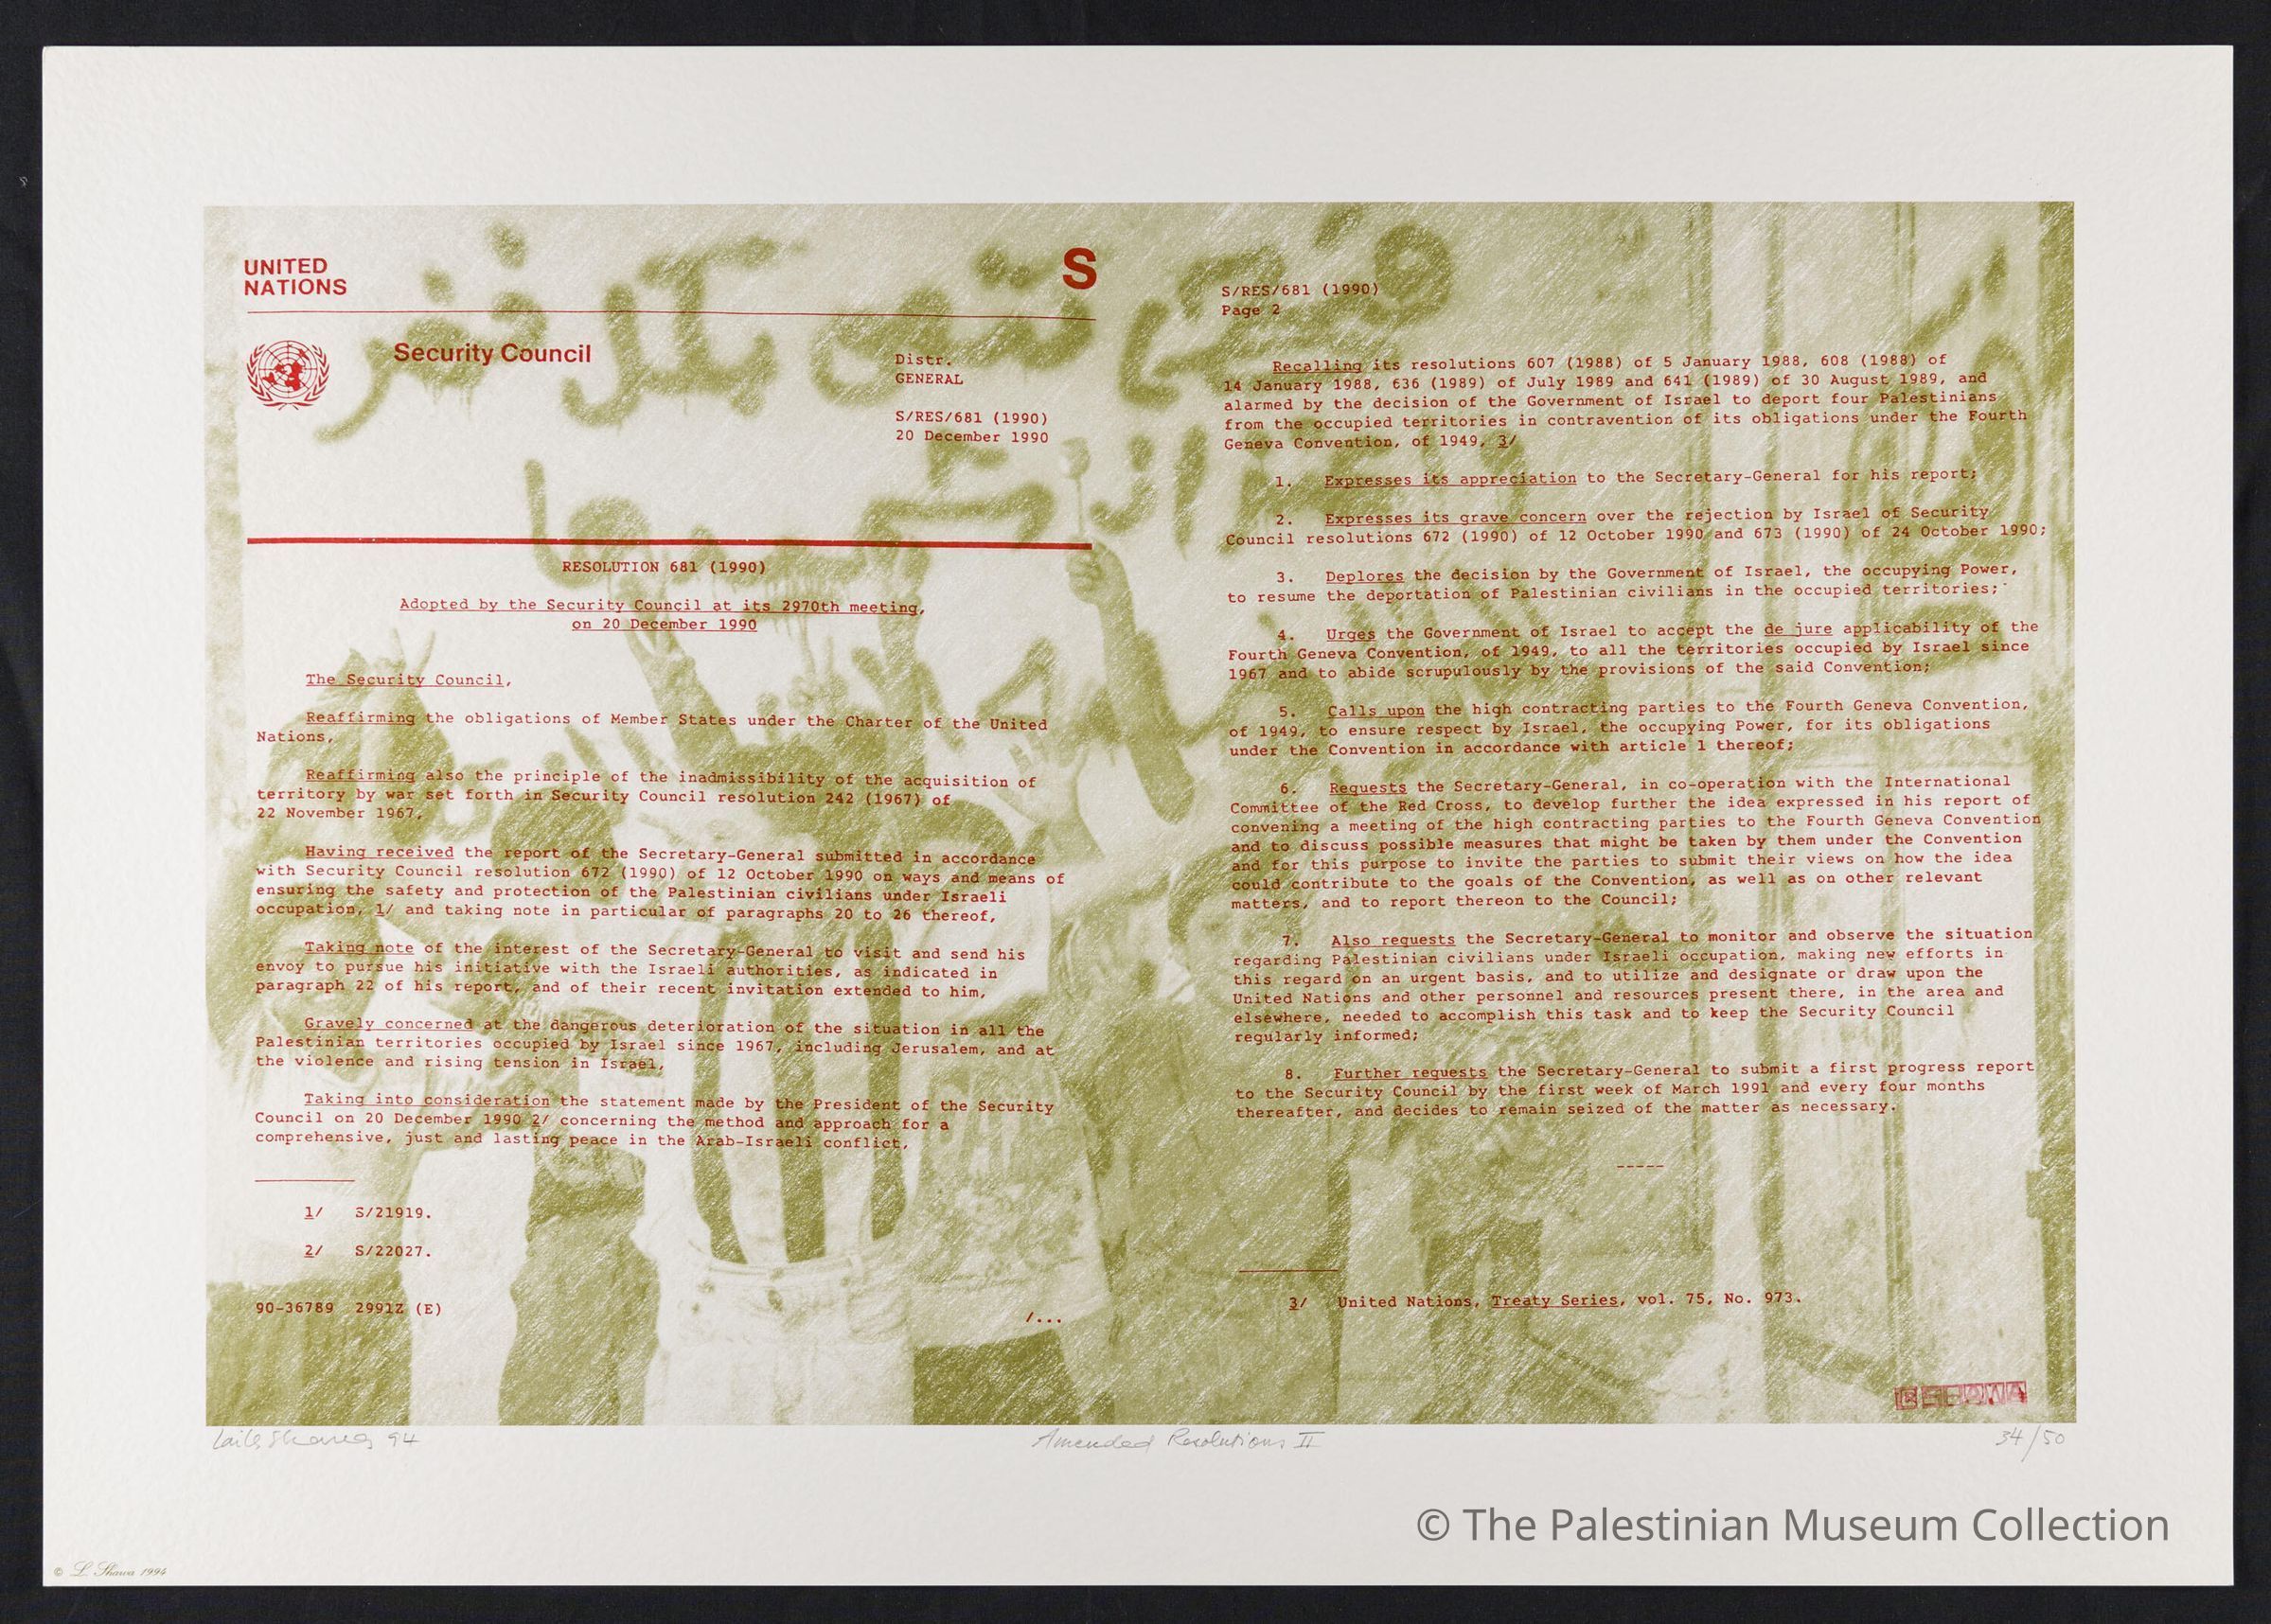 UNITED
NATIONS
S
Security Council
Distr.
GENERAL
S/RES/681 (1990)
20 December 1990
RESOLUTION 681 (1990)
Adopted by the Security Council at its 2970th meeting,
on 20 December 1990
The Security Council,
Reaffirming the obligations of Member States under the Charter of the United
Nations,
Reaffirming also the principle of the inadmissibility of the acquisition of
territory by war set forth in Security Council resolution 242 (1967) of
22 November 1967,
Having received the report of the Secretary-General submitted in accordance
with Security Council resolution 672 (1990) of 12 October 1990 on ways and means of
ensuring the safety and protection of the Palestinian civilians under Israeli
occupation, 1/ and taking note in particular of paragraphs 20 to 26 thereof,
Taking note of the interest of the Secretary-General to visit and send his
envoy to pursue his initiative with the Israeli authorities, as indicated in
paragraph 22 of his report, and of their recent invitation extended to him,
Gravely concerned at the dangerous deterioration of the situation in all the
Palestinian territories occupied by Israel since 1967, including Jerusalem, and at
the violence and rising tension in Israel,
Taking into consideration the statement made by the President of the Security
Council on 20 December 1990 2/ concerning the method and approach for a
comprehensive, just and lasting peace in the Arab-Israeli conflict,
1/ S/21919.
2/ S/22027.
90-36789 2991Z (E)
/...
S/RES/681 (1990)
Page 2
Recalling its resolutions 607 (1988) of 5 January 1988, 608 (1988) of
14 January 1988, 636 (1989) of July 1989 and 641 (1989) of 30 August 1989, and
alarmed by the decision of the Government of Israel to deport four Palestinians
from the occupied territories in contravention of its obligations under the Fourth
Geneva Convention, of 1949, 3/
1. Expresses its appreciation to the Secretary-General for his report;
2. Expresses its grave concern over the rejection by Israel of Security
Council resolutions 672 (1990) of 12 October 1990 and 673 (1990) of 24 October 1990;
3. Deplores the decision by the Government of Israel, the occupying Power,
to resume the deportation of Palestinian civilians in the occupied territories;
4. Urges the Government of Israel to accept the de jure applicability of the
Fourth Geneva Convention, of 1949, to all the territories occupied by Israel since
1967 and to abide scrupulously by the provisions of the said Convention;
5. Calls upon the high contracting parties to the Fourth Geneva Convention,
of 1949, to ensure respect by Israel, the occupying Power, for its obligations
under the Convention in accordance with article 1 thereof;
6. Requests the Secretary-General, in co-operation with the International
Committee of the Red Cross, to develop further the idea expressed in his report of
convening a meeting of the high contracting parties to the Fourth Geneva Convention
and to discuss possible measures that might be taken by them under the Convention
and for this purpose to invite the parties to submit their views on how the idea
could contribute to the goals of the Convention, as well as on other relevant
matters, and to report thereon to the Council;
7. Also requests the Secretary-General to monitor and observe the situation
regarding Palestinian civilians under Israeli occupation, making new efforts in
this regard on an urgent basis, and to utilize and designate or draw upon the
United Nations and other personnel and resources present there, in the area and
elsewhere, needed to accomplish this task and to keep the Security Council
regularly informed;
8. Further requests the Secretary-General to submit a first progress report
to the Security Council by the first week of March 1991 and every four months
thereafter, and decides to remain seized of the matter as necessary.
-----
3/ United Nations, Treaty Series, vol. 75, No. 973.
Laila Shawa 94
Amended Resolutions II
34/50
© The Palestinian Museum Collection
© L. Shawa 1994